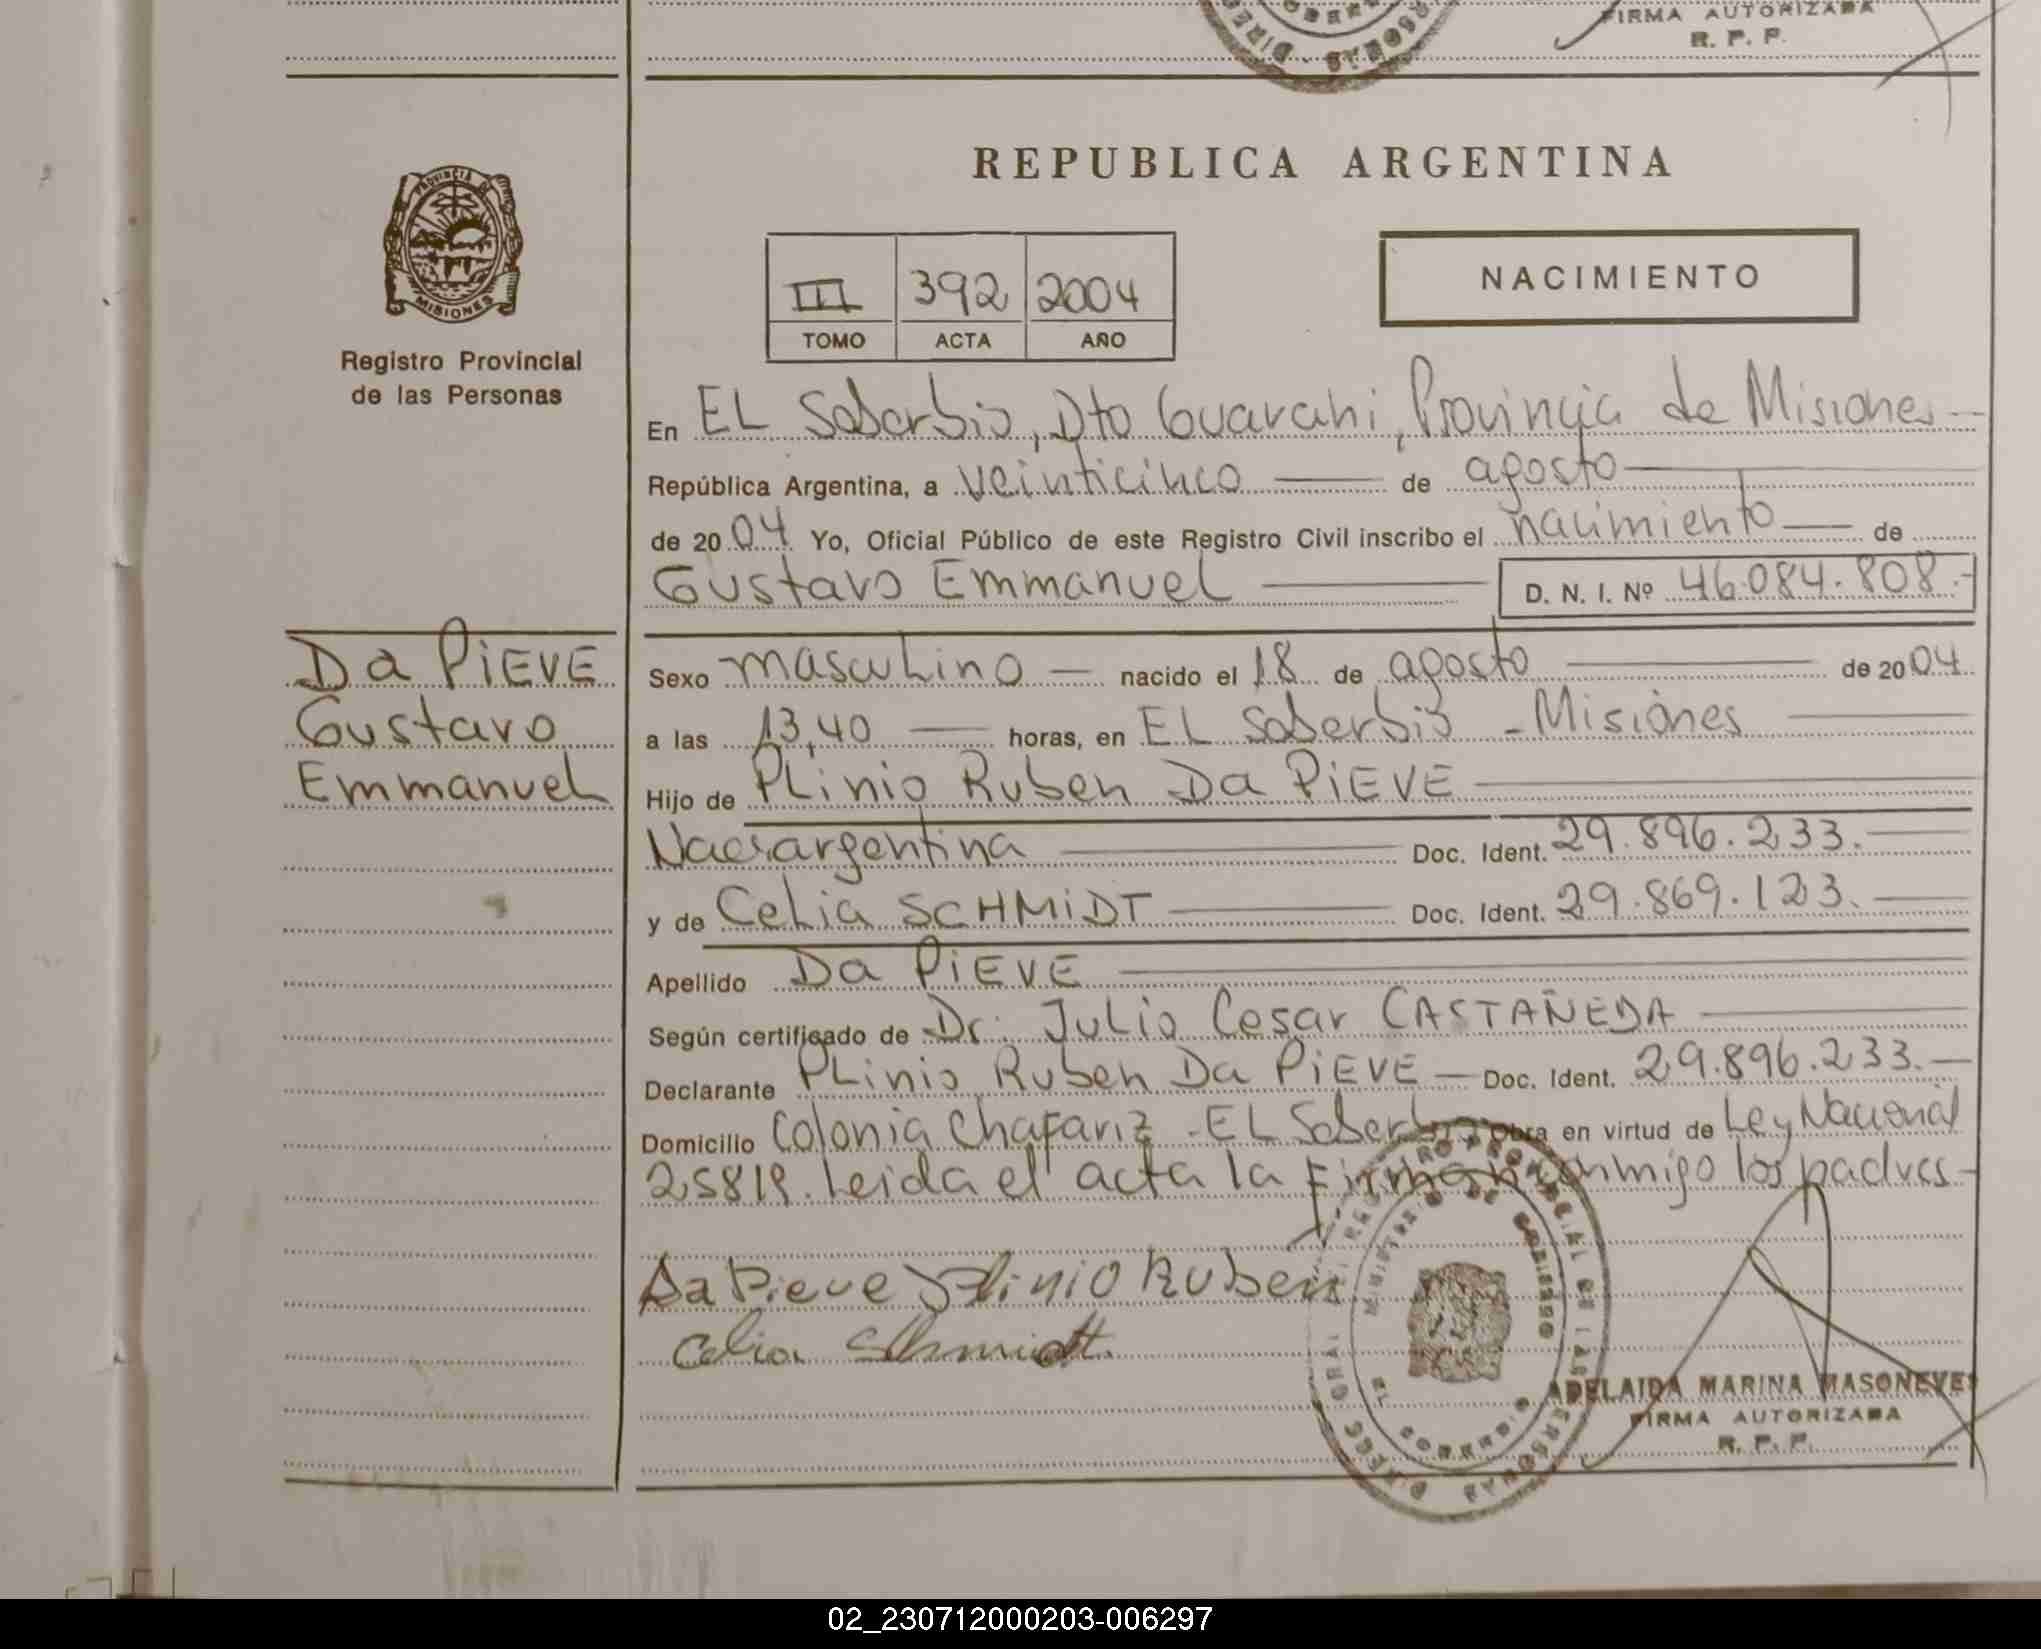 FIRMA AUTORIZADA
R. P. P.
PROVINCIA DE MISIONES
Registro Provincial
de las Personas
REPUBLICA ARGENTINA
III 392 2004
TOMO ACTA AÑO
NACIMIENTO
En EL Soberbio, Dto Guarani, Provincia de Misiones
República Argentina, a veinticinco de agosto
de 2004 Yo, Oficial Público de este Registro Civil inscribo el nacimiento de
Gustavo Emmanuel D. N. I. Nº 46.084.808.-
Da PiEVE
Gustavo
Emmanuel
Sexo masculino nacido el 18 de agosto de 2004
a las 13,40 horas, en EL Soberbio - Misiones
Hijo de PLinio Ruben Da PiEVE
Nac. argentina Doc. Ident. 29.896.233.
y de Celia SCHMiDT Doc. Ident. 29.869.123.
Apellido Da PiEVE
Según certificado de Dr. Julio Cesar CASTAÑEDA
Declarante PLinio Ruben Da PiEVE Doc. Ident. 29.896.233.
Domicilio Colonia Chafariz - EL Soberbio Obra en virtud de Ley Nacional
25819. Leida el acta la Firman conmigo los padres
Da Pieve Plinio Ruben
Celia Schmidt.
ADELAIDA MARINA MASONEVES
FIRMA AUTORIZADA
R. P. P.
02_230712000203-006297